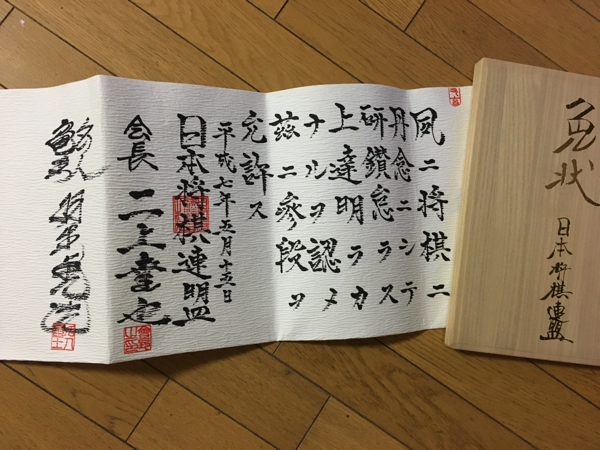 免状
日本将棋連盟
夙ニ将棋ニ
丹念ニシテ
研鑽怠ラス
上達明ラカ
ナルヲ認メ
茲ニ参段ヲ
允許ス
平成七年五月十五日
日本将棋連盟
会長 二上達也
羽生善治